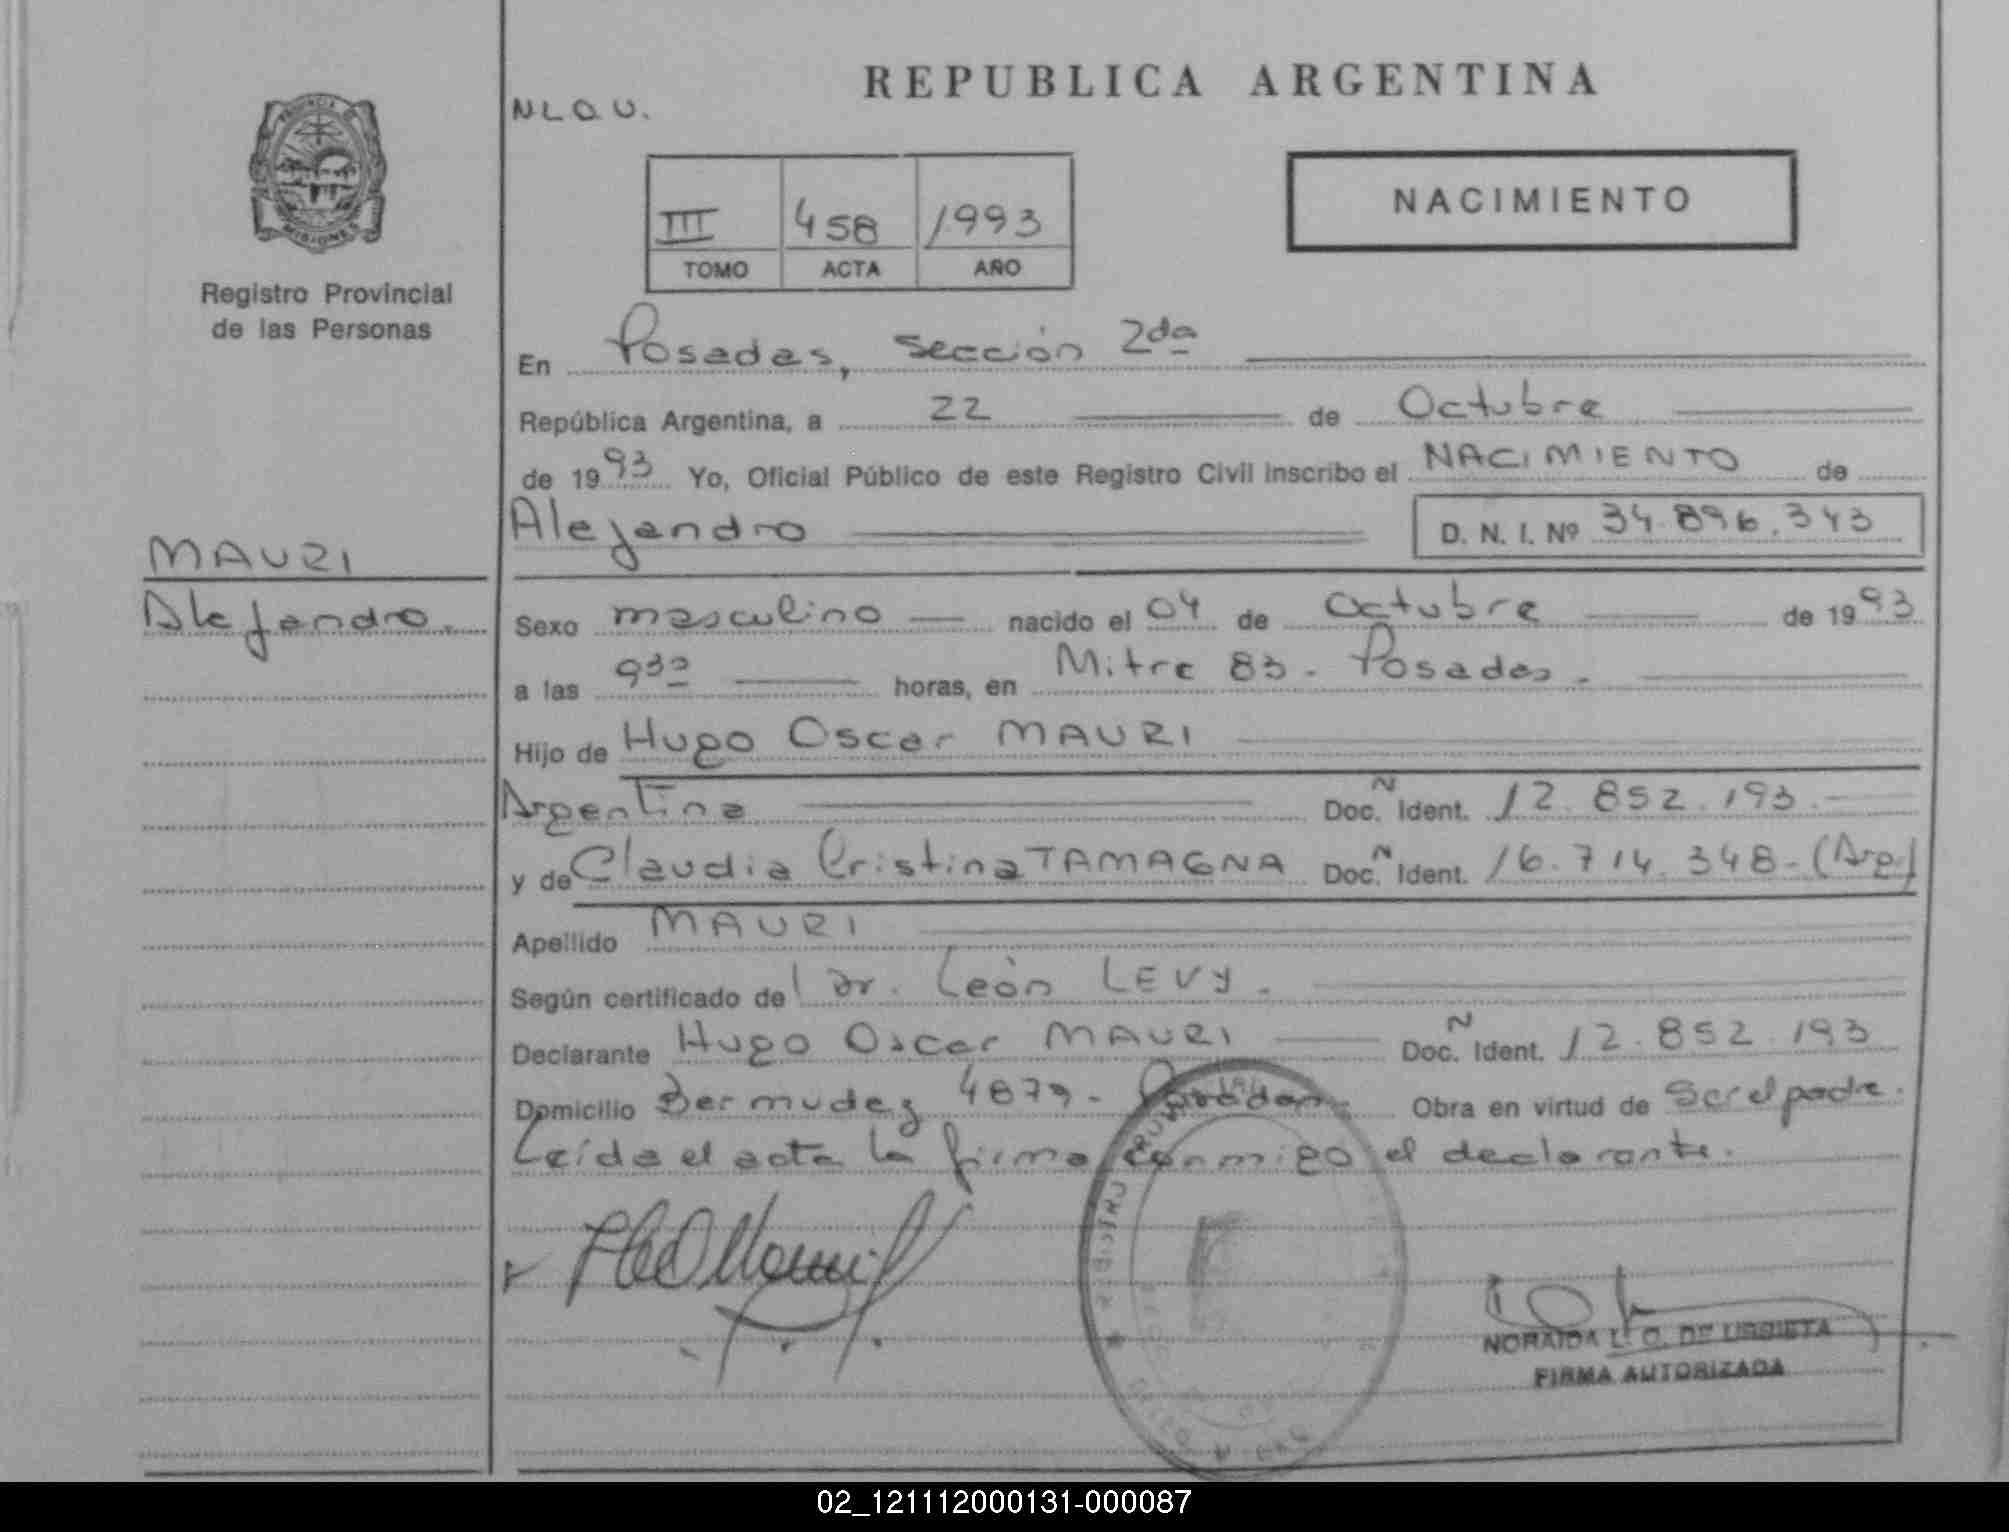 REPUBLICA ARGENTINA
N L O. U.
PROVINCIA
MISIONES
Registro Provincial
de las Personas
III 458 1993
TOMO ACTA AÑO
NACIMIENTO
En Posadas, Sección 2da
República Argentina, a 22 de Octubre
de 1993 Yo, Oficial Público de este Registro Civil inscribo el NACIMIENTO de
Alejandro D. N. I. Nº 34.896.343
MAURI
Alejandro.
Sexo masculino nacido el 04 de Octubre de 1993
a las 930 horas, en Mitre 83 - Posadas.
Hijo de Hugo Oscar MAURI
Argentina Doc. Ident. 12.852.193.
y de Claudia Cristina TAMAGNA Doc. Ident. 16.714.348-(Arg.)
Apellido MAURI
Según certificado de Dr. León LEVY.
Declarante Hugo Oscar MAURI Doc. Ident. 12.852.193
Domicilio Bermudez 4879- Posadas. Obra en virtud de Ser el padre.
Leída el acta la firma conmigo el declarante.
NORAIDA L. O. DE URRIETA
FIRMA AUTORIZADA
02_121112000131-000087